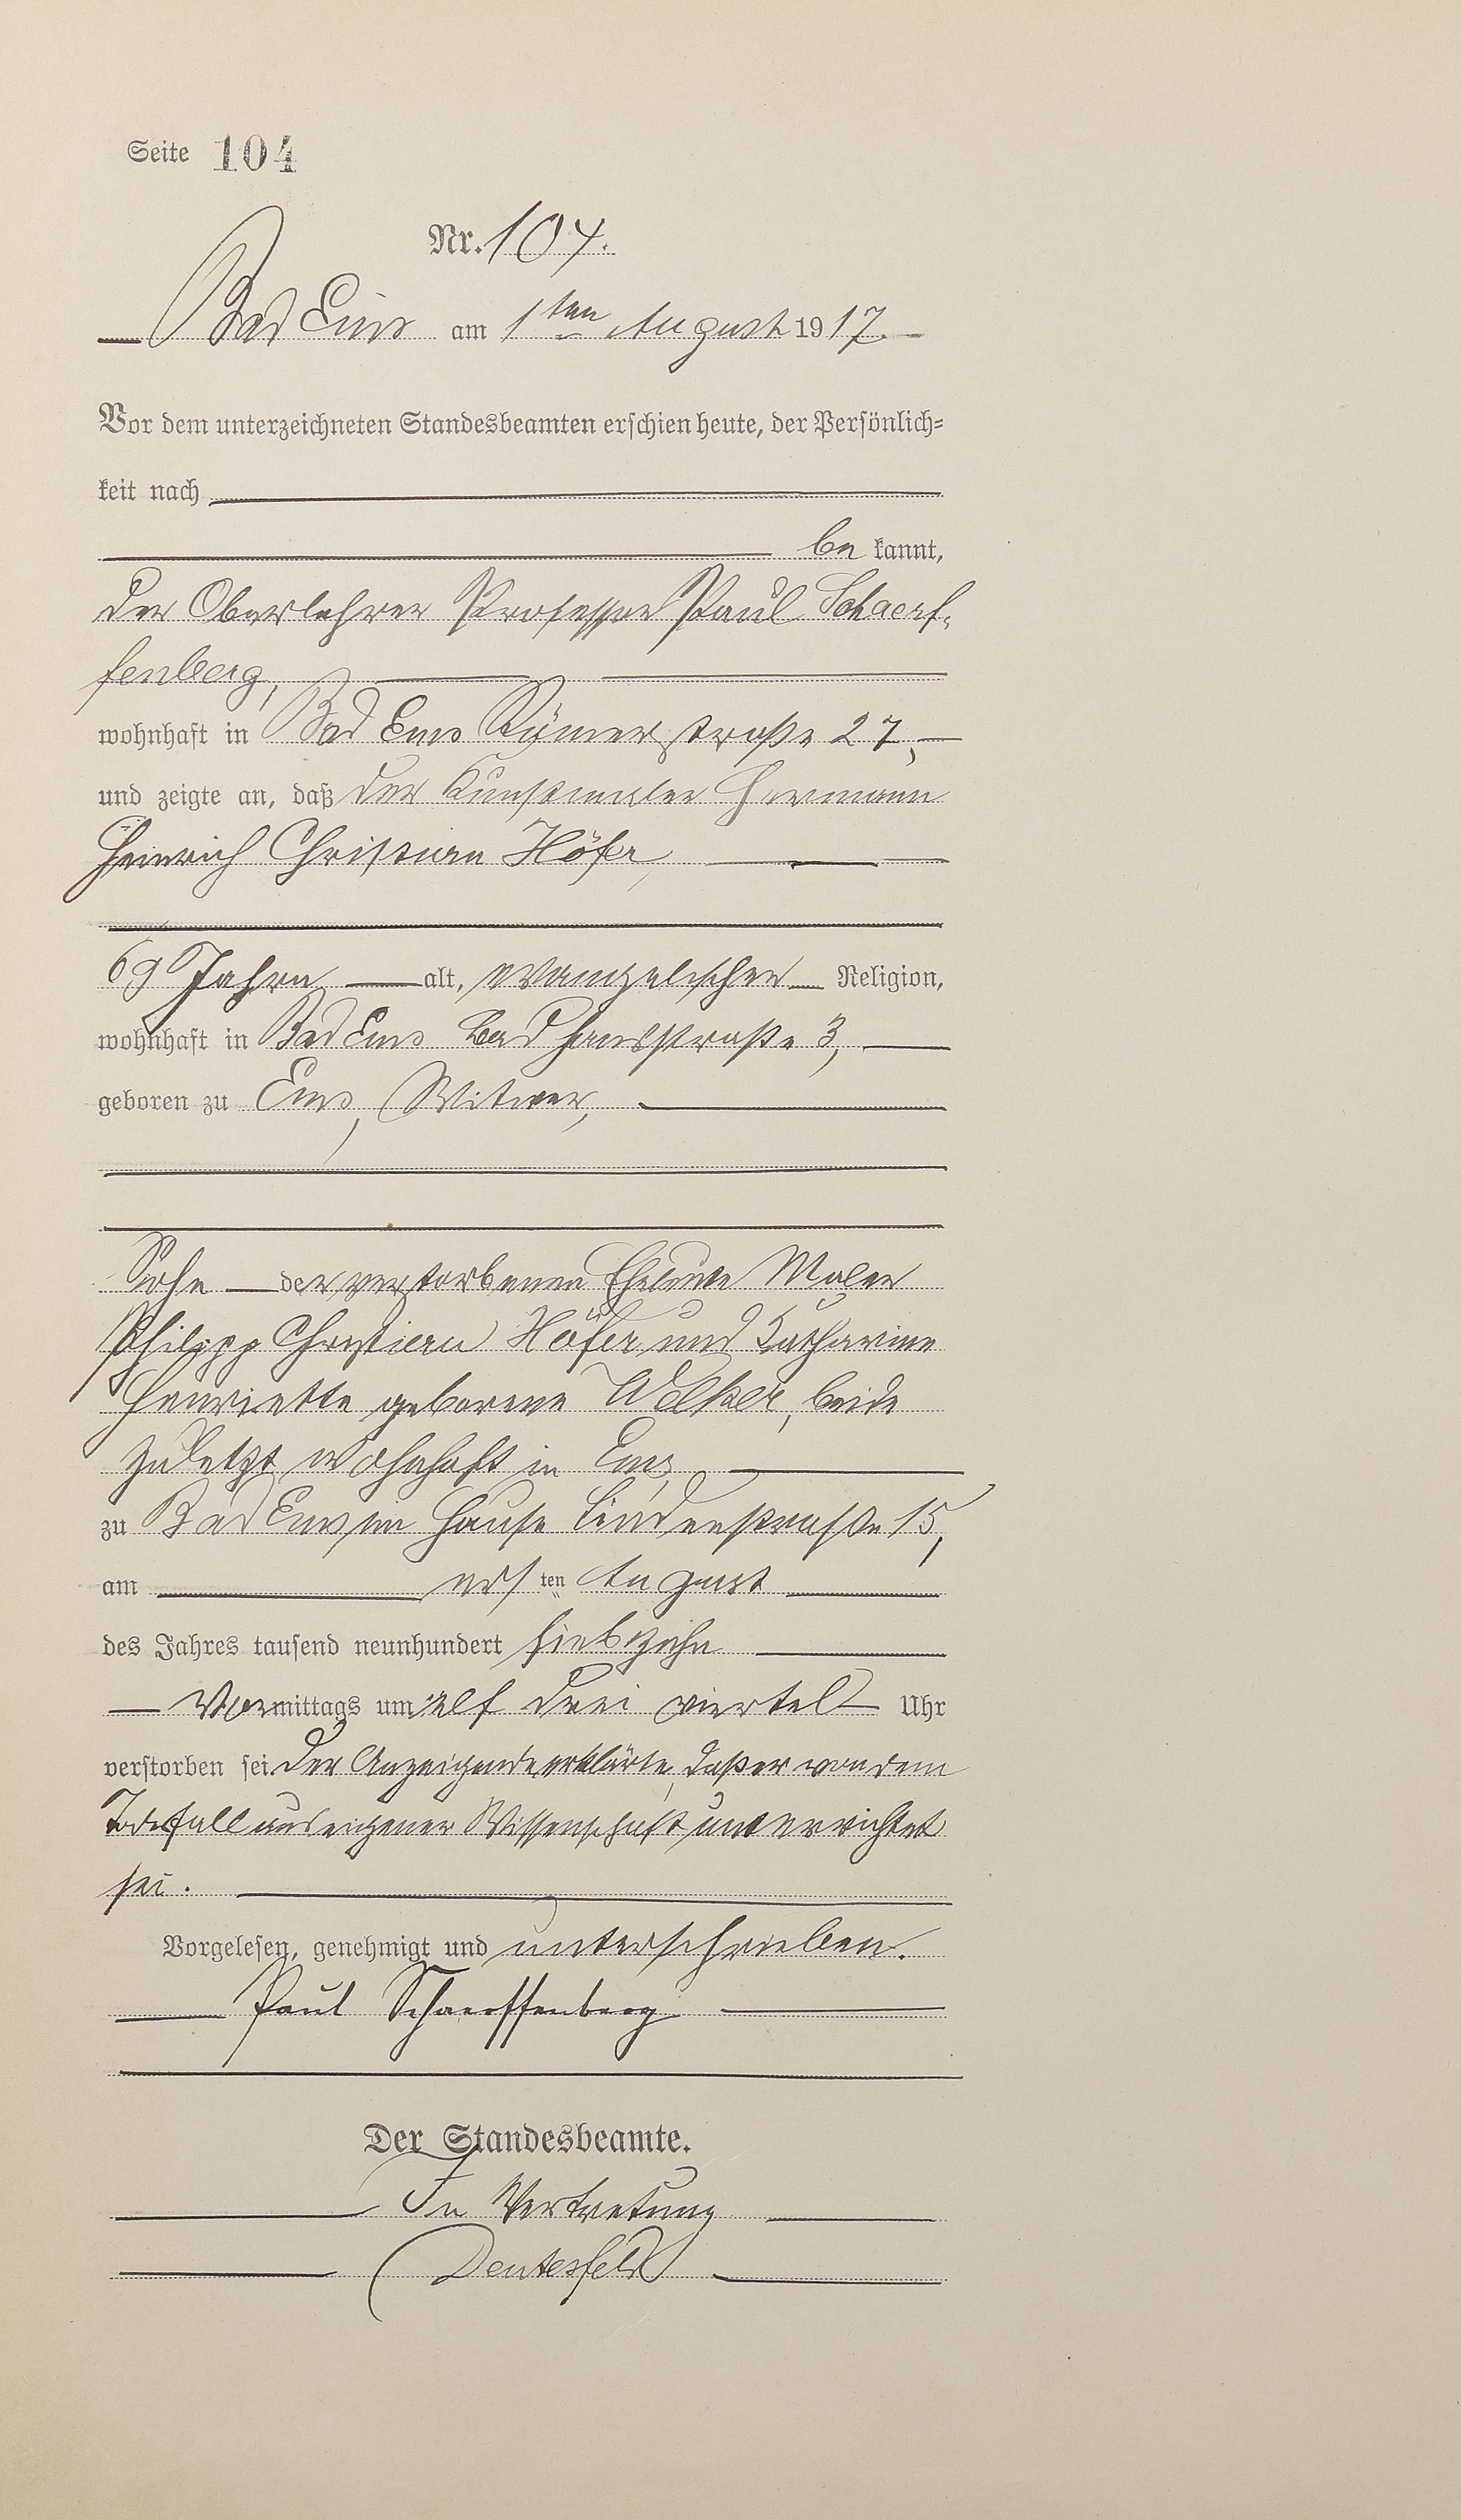 Seite 104
Nr. 104.
Bad Ems am 1ten August 1917.
Vor dem unterzeichneten Standesbeamten erschien heute, der Persönlich=
keit nach
be kannt,
der Oberlehrer Professor Paul Schaerf-
fenberg,
wohnhaft in Bad Ems Römerstraße 27,
und zeigte an, daß der Kunstmaler Hermann
Heinrich Christian Höfer,
69 Jahre alt, evangelischer Religion,
wohnhaft in Bad Ems Badhausstraße 3,
geboren zu Ems, Witwer,
Sohn der verstorbenen Eheleute Maler
Philipp Christian Höfer und Katharine
Henriette geborene Welker, beide
zuletzt wohnhaft in Ems,
zu Bad Ems im Hause Lindenstraße 15,
am ersten August
des Jahres tausend neunhundert siebzehn
Vormittags um elf drei viertel Uhr
verstorben sei. Der Anzeigende erklärte, daß er von dem
Todesfall aus eigener Wissenschaft unterrichtet
sei.
Vorgelesen, genehmigt und unterschrieben.
Paul Schaerffenberg
Der Standesbeamte.
In Vertretung
Deutesfeld